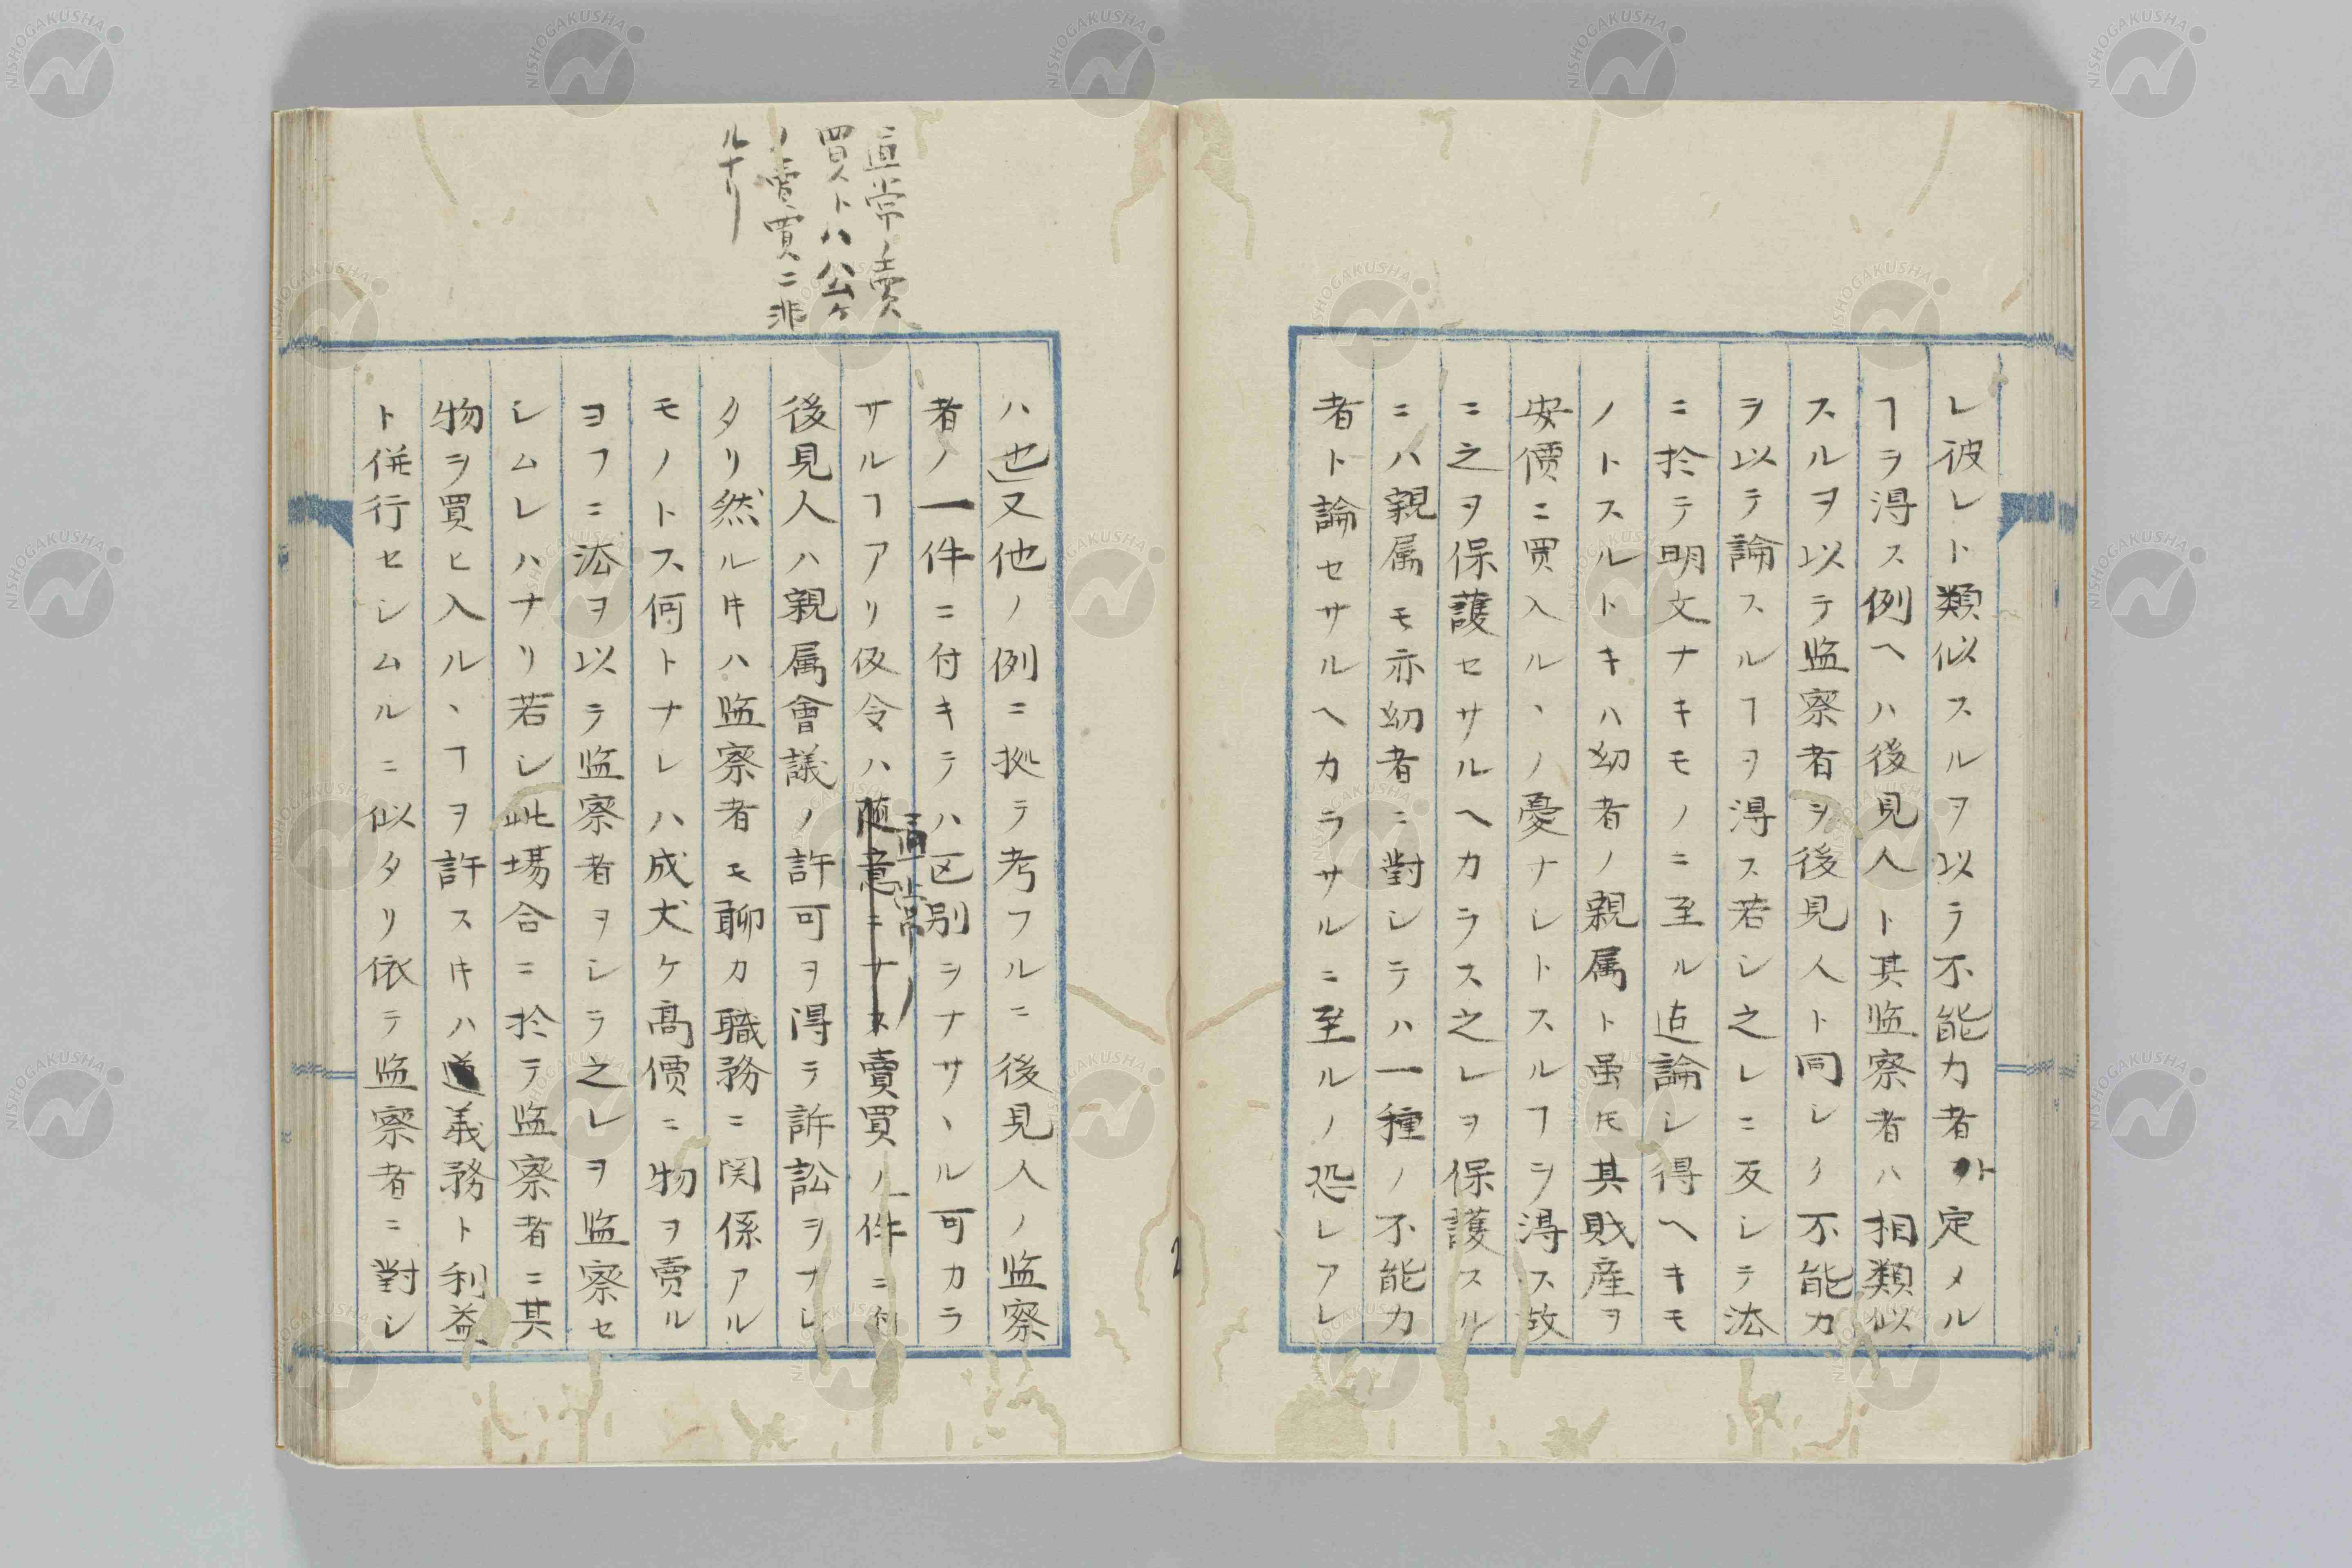 レ彼レト類似スルヲ以テ不能力者カ定メル
ヿヲ得ス例ヘハ後見人ト其監察者ハ相類似
スルヲ以テ監察者ヲ後見人ト同シク不能力
ヲ以テ論スルヿヲ得ス若シ之レニ反シテ法
ニ於テ明文ナキモノニ至ル迠論シ得ヘキモ
ノトスルトキハ幼者ノ親属ト虽𪜈其財産ヲ
安價ニ買入ルヽノ憂ナシトスルヿヲ得ス故
ニ之ヲ保護セサルヘカラス之レヲ保護スル
ニハ親属モ亦幼者ニ對シテハ一種ノ不能力
者ト論セサルヘカラサルニ至ルノ恐レアレ
直常ノ賣
買トハ公ケ
ノ賣買ニ非
ルナリ
ハ也又他ノ例ニ拠テ考フルニ後見人ノ监察
者ノ一件ニ付キテハ区別ヲナサヽル可カラ
サルヿアリ仮令ハ随意ニナス賣買ノ件ニ付
直常ノ
後見人ハ親属會議ノ許可ヲ得テ訴訟ヲナシ
タリ然ル𪜈ハ监察者モ聊カ職務ニ関係アル
モノトス何トナレハ成丈ケ髙價ニ物ヲ賣ル
ヨフニ法ヲ以テ监察者ヲシテ之レヲ监察セ
シムレハナリ若シ此場合ニ於テ监察者ニ其
物ヲ買ヒ入ルヽヿヲ許スキハ義務ト利益
ト併行セシムルニ似タリ依テ监察者ニ對シ
NISHOGAKUSHA